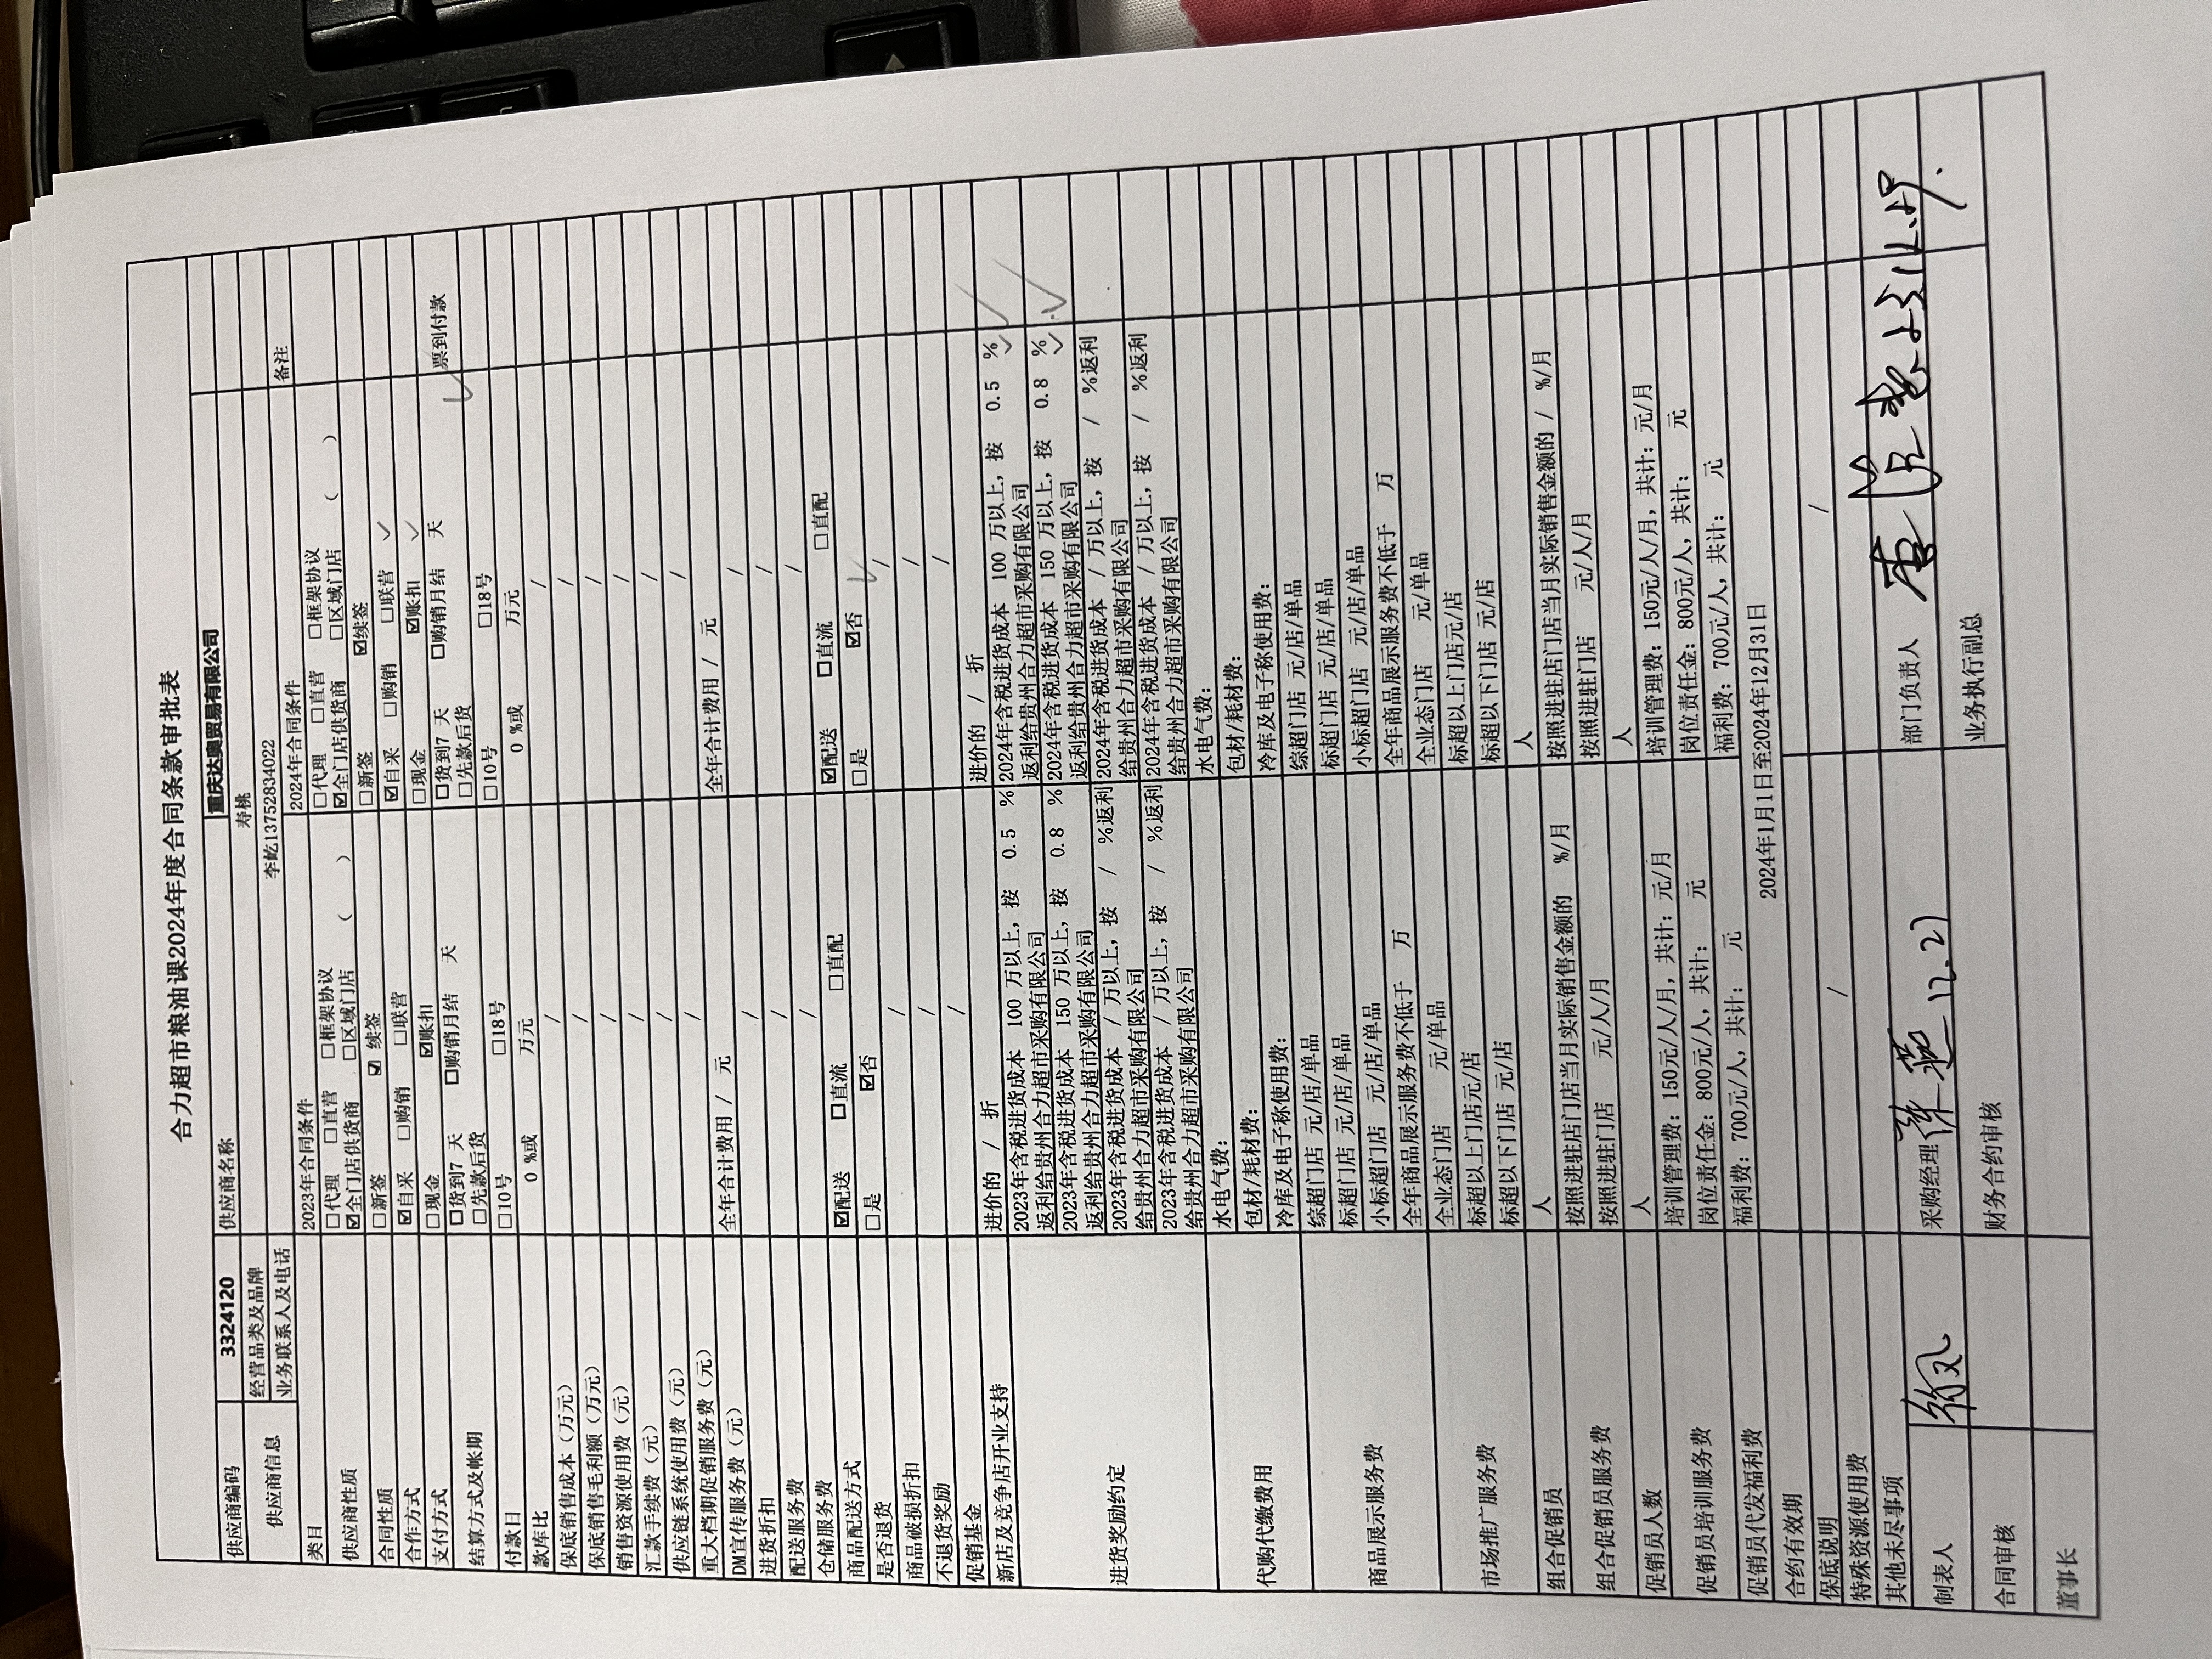 合力超市粮油课2024年度合同条款审批表
供应商编码 3324120 供应商名称 重庆达奥贸易有限公司
供应商信息 经营品类及品牌 寿桃
业务联系人及电话 李屹13752834022
类目 2023年合同条件 2024年合同条件 备注
供应商性质 □代理 □直营 □框架协议 □代理 □直营 □框架协议
☑全门店供货商 □区域门店 ( ) ☑全门店供货商 □区域门店 ( )
合同性质 □新签 ☑ 续签 □新签 ☑续签
合作方式 ☑自采 □购销 □联营 ☑自采 □购销 □联营 ✓
支付方式 □现金 ☑账扣 □现金 ☑账扣 ✓
结算方式及帐期 □货到7 天 □购销月结 天 □货到7 天 □购销月结 天 ✓ 票到付款
□先款后货 □先款后货
付款日 □10号 □18号 □10号 □18号
款库比 0 %或 万元 0 %或 万元
保底销售成本（万元） / /
保底销售毛利额（万元） / /
销售资源使用费（元） / /
汇款手续费（元） / /
供应链系统使用费（元） / /
重大档期促销服务费（元） / /
DM宣传服务费（元） 全年合计费用 / 元 全年合计费用 / 元
进货折扣 / /
配送服务费 / /
仓储服务费 / /
商品配送方式 ☑配送 □直流 □直配 ☑配送 □直流 □直配
是否退货 □是 ☑否 □是 ☑否 ✓
商品破损折扣 / /
不退货奖励 / /
促销基金 / /
新店及竞争店开业支持 进价的 / 折 进价的 / 折
进货奖励约定 2023年含税进货成本 100 万以上，按 0.5 % 2024年含税进货成本 100 万以上，按 0.5 % ✓
返利给贵州合力超市采购有限公司 返利给贵州合力超市采购有限公司
2023年含税进货成本 150 万以上，按 0.8 % 2024年含税进货成本 150 万以上，按 0.8 % ✓
返利给贵州合力超市采购有限公司 返利给贵州合力超市采购有限公司
2023年含税进货成本 / 万以上，按 / %返利 2024年含税进货成本 / 万以上，按 / %返利
给贵州合力超市采购有限公司 给贵州合力超市采购有限公司
2023年含税进货成本 / 万以上，按 / %返利 2024年含税进货成本 / 万以上，按 / %返利
给贵州合力超市采购有限公司 给贵州合力超市采购有限公司
代购代缴费用 水电气费： 水电气费：
包材/耗材费： 包材/耗材费：
冷库及电子称使用费： 冷库及电子称使用费：
商品展示服务费 综超门店 元/店/单品 综超门店 元/店/单品
标超门店 元/店/单品 标超门店 元/店/单品
小标超门店 元/店/单品 小标超门店 元/店/单品
全年商品展示服务费不低于 万 全年商品展示服务费不低于 万
市场推广服务费 全业态门店 元/单品 全业态门店 元/单品
标超以上门店元/店 标超以上门店元/店
标超以下门店 元/店 标超以下门店 元/店
组合促销员 人 人
组合促销员服务费 按照进驻店门店当月实际销售金额的 %/月 按照进驻店门店当月实际销售金额的 / %/月
按照进驻门店 元/人/月 按照进驻门店 元/人/月
促销员人数 人 人
促销员培训服务费 培训管理费：150元/人/月，共计： 元/月 培训管理费：150元/人/月，共计： 元/月
岗位责任金：800元/人，共计： 元 岗位责任金：800元/人，共计： 元
促销员代发福利费 福利费：700元/人，共计： 元 福利费：700元/人，共计： 元
合约有效期 2024年1月1日至2024年12月31日
保底说明
特殊资源使用费 / /
其他未尽事项
制表人 采购经理 12.21 部门负责人
合同审核 财务合约审核 业务执行副总
董事长